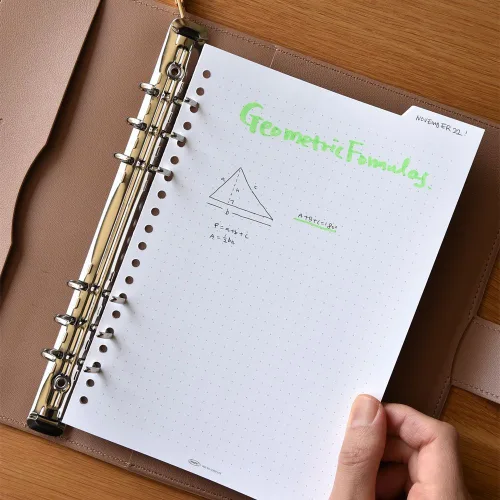 NOVEMBER 22!
Geometric Formulas.
a
h
c
b
A+B+C=180°
P=a+b+c
A=½bh